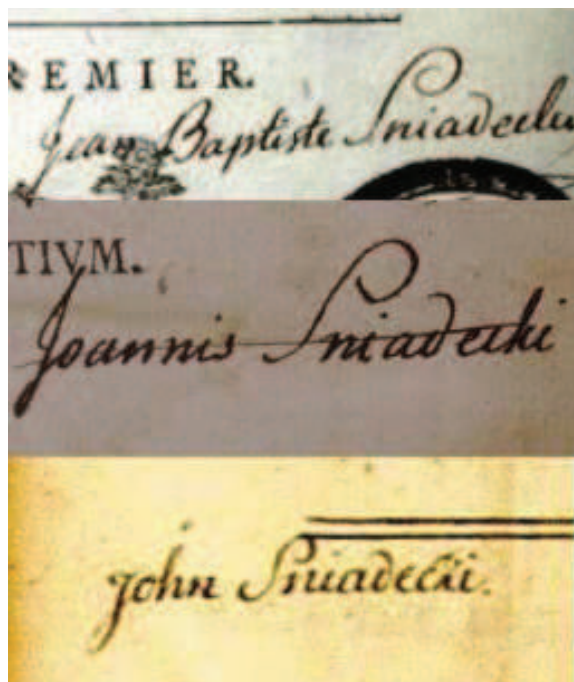 REMIER.
Jean Baptiste Sniadecki
TIVM.
Joannis Sniadecki
John Sniadecki.